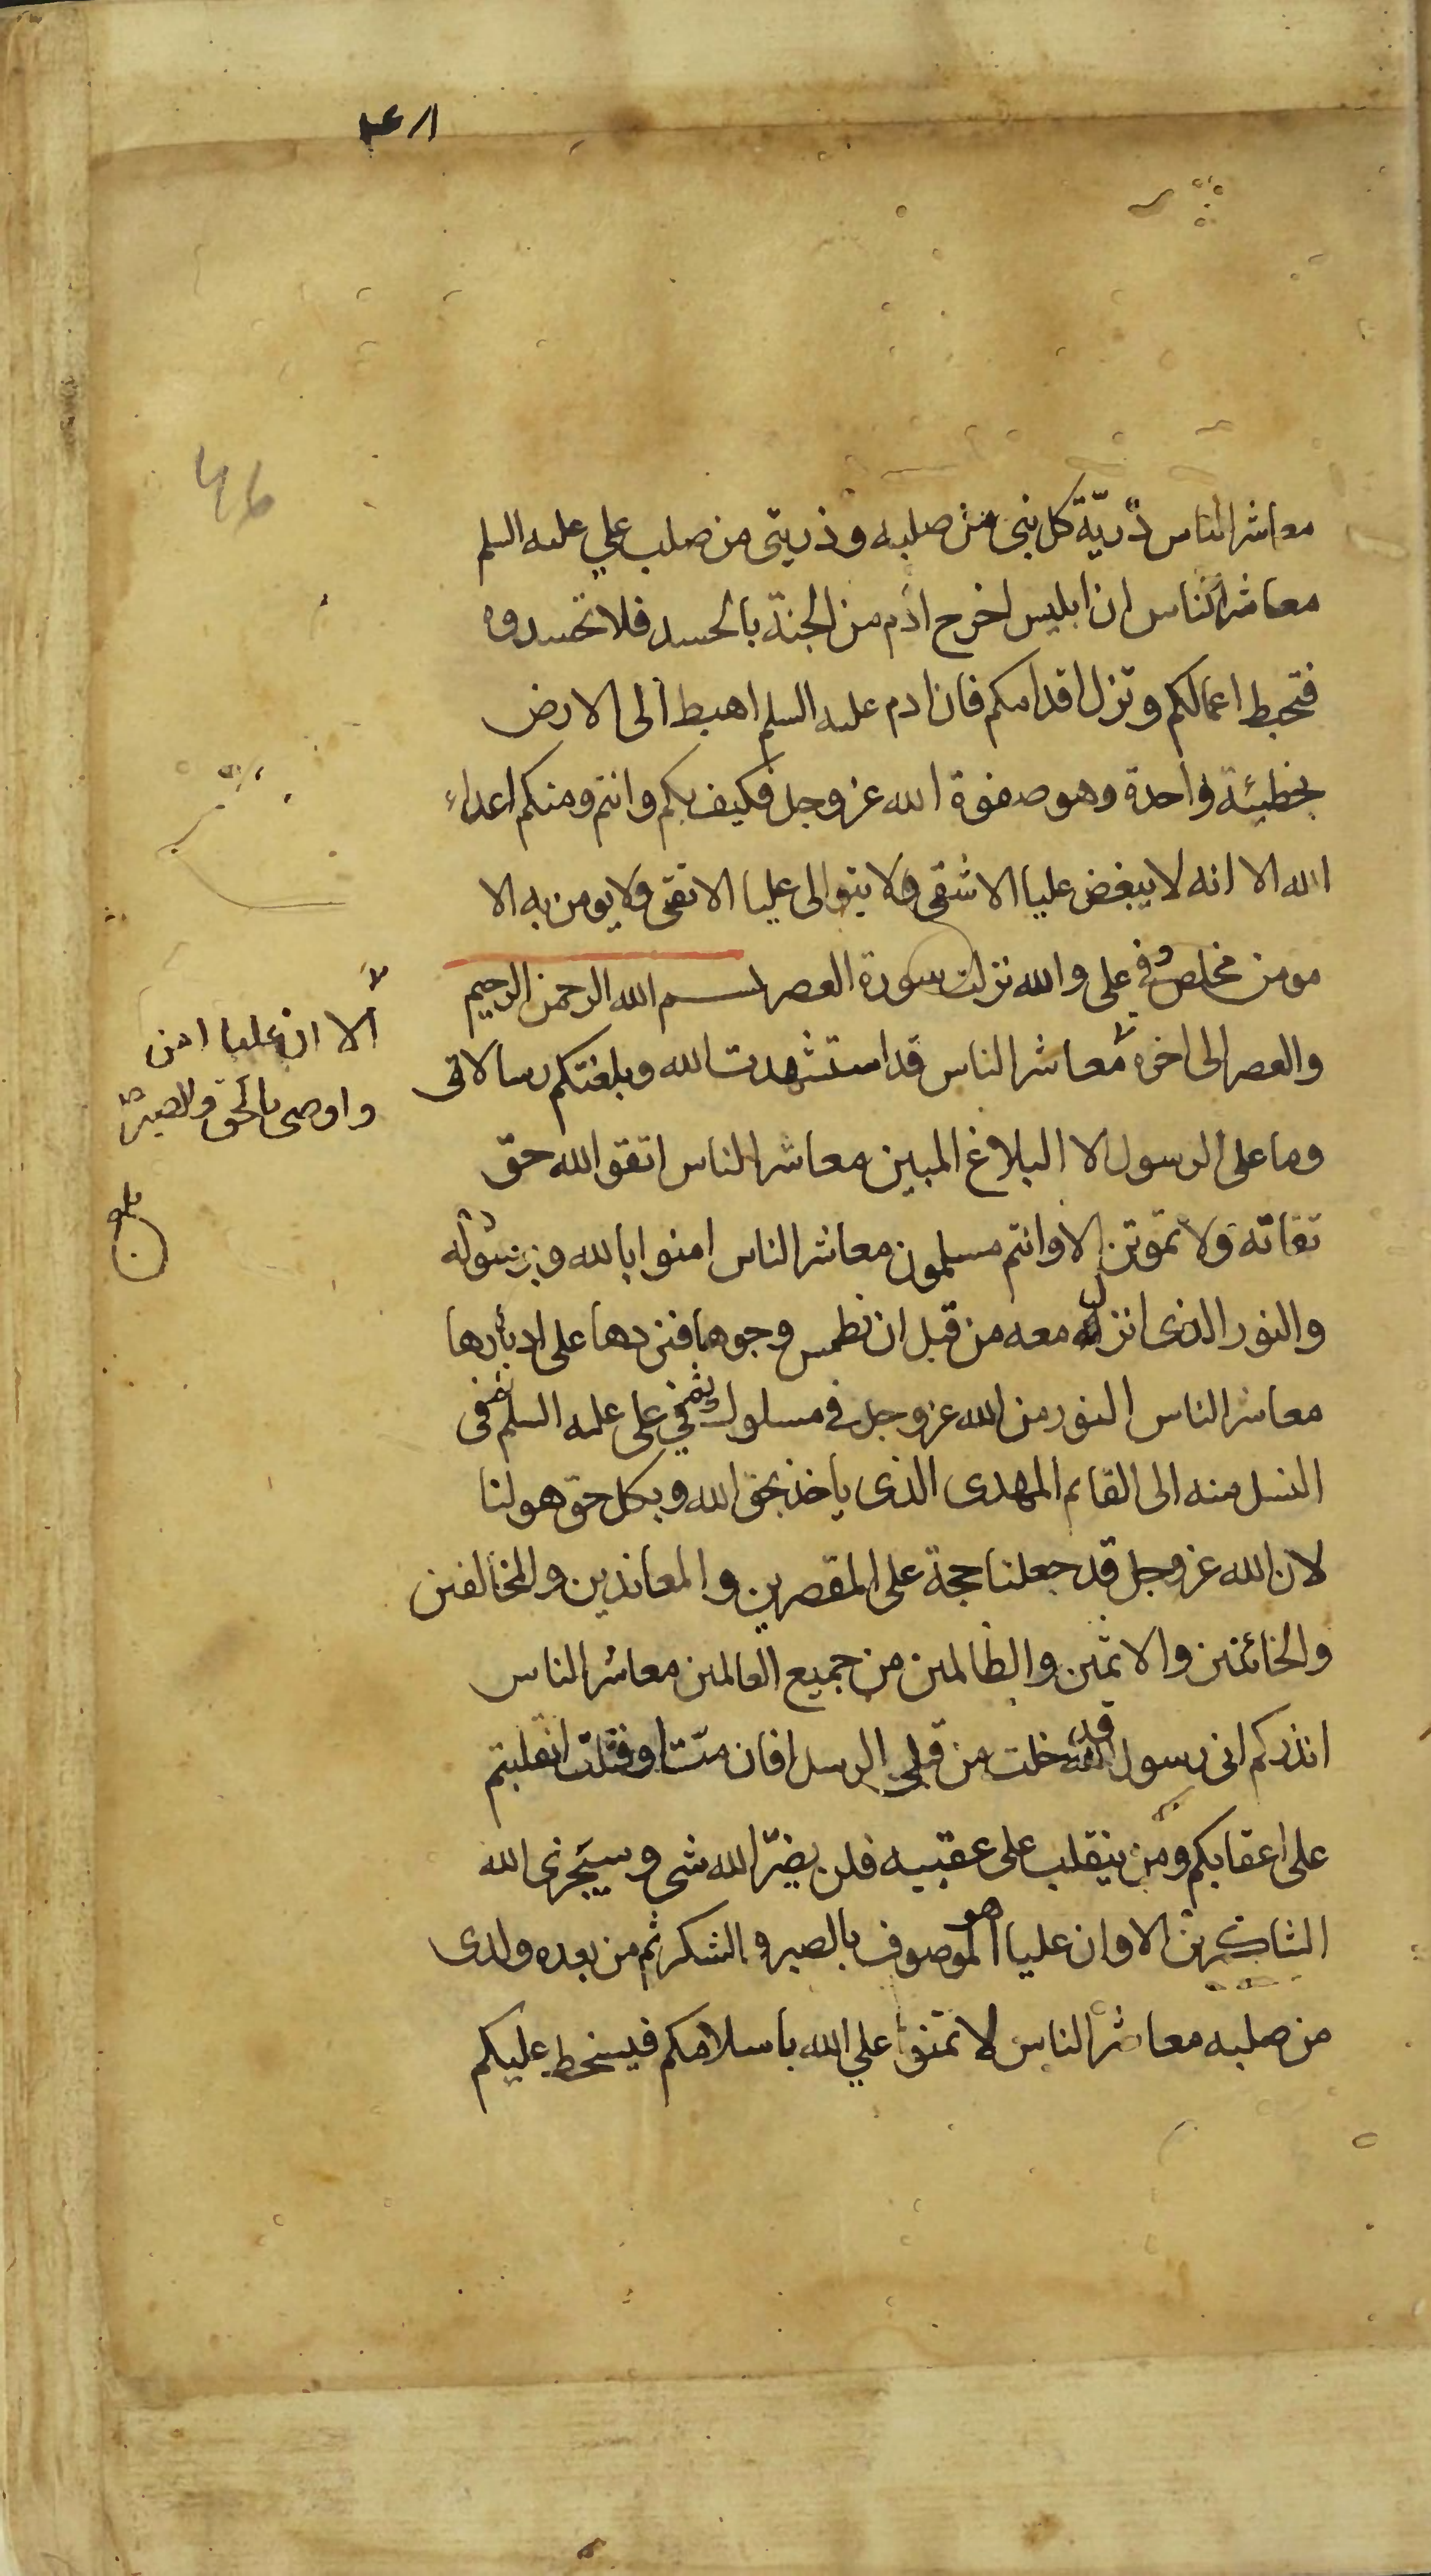 معاشر الناس ذريّة كل نبى من صلبه و ذريتى من صلب علي عليه السلم
معاشر الناس ان ابليس اخرج ادم من الجنة بالحسد فلا تحسدوه
فتحبط اعمالكم و تزل اقدامكم فان ادم عليه السلم اهبط الى الارض
بخطيئة واحدة وهو صفوة الله عز وجل فكيف بكم وانتم ومنكم اعداء
الله الا انه لا يبغض عليا الا شقى ولا يتوالى عليا الا تقى ولا يومن به الا
مومن مخلص وفي على والله نزلت سورة العصر بسم الله الرحمن الرحيم
والعصر الى اخره معاشر الناس قد استشهدت الله وبلغتكم رسالاتى
وما على الرسول الا البلاغ المبين معاشر الناس اتقو الله حق
تقاته ولا تموتن الا وانتم مسلمون معاشر الناس امنوا بالله وبرسوله
والنور الذى انزل معه من قبل ان نطمس وجوها فنردها على ادبارها
معاشر الناس النور من الله عز وجل في مسلوك ثم في على عليه السلم ثم فى
النسل منه الى القايم المهدى الذى ياخذ بحق الله وبكل حق هو لنا
لان الله عز وجل قد جعلنا حجة على المقصرين والمعاندين والمخالفين
والخائنين والاثمين والظالمين من جميع العالمين معاشر الناس
انذركم انى رسول الله قد خلت من قبلي الرسل افان متّ او قتلت انقلبتم
على اعقابكم ومن ينقلب على عقبيه فلن يضرّ الله شى وسيجزى الله
الشاكرين الا وان عليا هو الموصوف بالصبر والشكر ثم من بعده ولدى
من صلبه معاشر الناس لا تمنوا علي الله باسلامكم فيسخط عليكم
الا ان عليا امن
واوصى بالحق والصبر
46